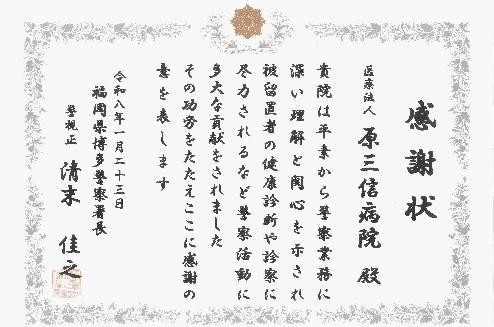 感謝状
医療法人 原三信病院 殿
貴院は平素から警察業務に
深い理解と関心を示され
被留置者の健康診断や診察に
尽力されるなど警察活動に
多大な貢献をされました
その功労をたたえここに感謝の
意を表します
令和八年一月二十三日
福岡県博多警察署長
警視正 清末 佳之